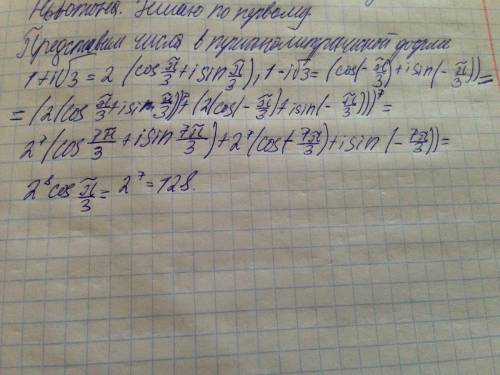 Ньютона. Решаю по первому.
Представим числа в тригонометрической форме
1+i√3 = 2 (cos π/3 + i sin π/3), 1-i√3 = (cos(-π/3) + i sin(-π/3)) =
= (2(cos π/3 + i sin π/3))⁷ + (2(cos(-π/3) + i sin(-π/3)))⁷ =
2⁷(cos 7π/3 + i sin 7π/3) + 2⁷(cos(-7π/3) + i sin(-7π/3)) =
2⁸ cos π/3 = 2⁷ = 128.